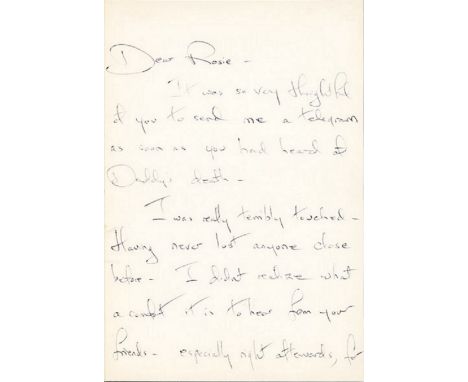 Dear Rosie -
It was so very thoughtful
of you to send me a telegram
as soon as you had heard of
Daddy's death -
I was really terribly touched -
Having never lost anyone close
before - I didnt realize what
a comfort it is to hear from your
friends - especially right afterwards, for